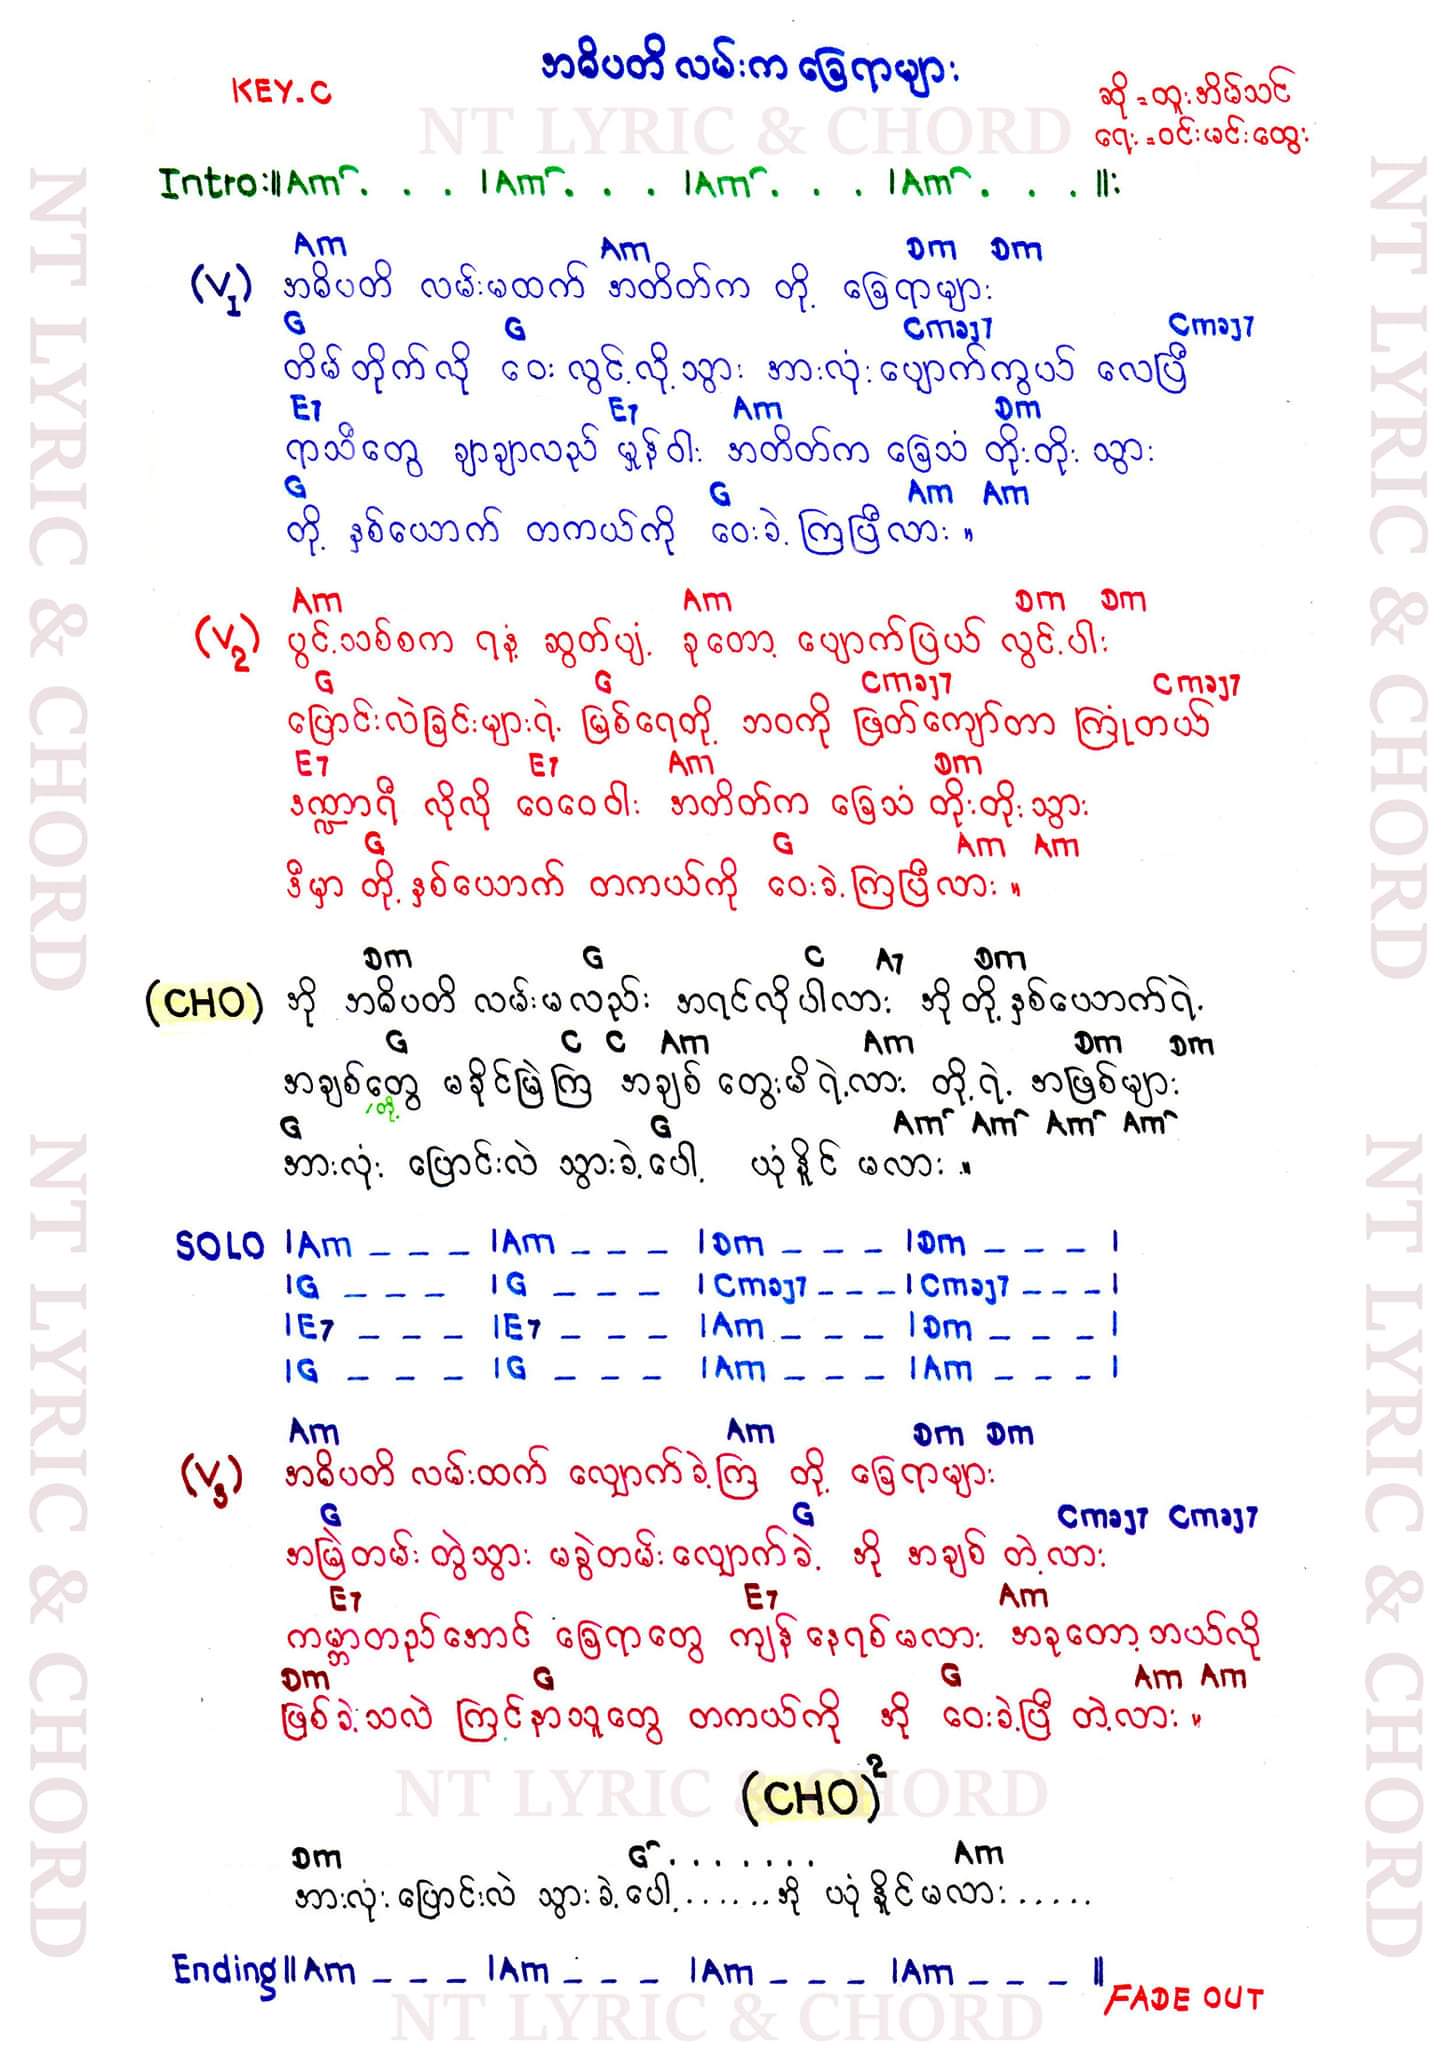 အဓိပတိ လမ်းက ခြေရာများ
KEY.C
ဆို = ထူးအိမ်သင်
ရေး = ဝင်းမင်းထွေး
NT LYRIC & CHORD
Intro:||Am⌒. . . |Am⌒. . . |Am⌒. . . |Am⌒. . . ||:
Am Am Dm Dm
(V1) အဓိပတိ လမ်းမထက် အတိတ်က တို့ ခြေရာများ
G G Cmaj7 Cmaj7
တိမ်တိုက်လို ဝေးလွင့်လို့သွား အားလုံးပျောက်ကွယ် လေပြီ
E7 E7 Am Dm
ရာသီတွေ ချာချာလည် မှုန်ဝါး အတိတ်က ခြေသံ တိုးတိုး သွား
G G Am Am
တို့ နှစ်ယောက် တကယ်ကို ဝေးခဲ့ကြပြီလား ။
Am Am Dm Dm
(V2) ပွင့်သစ်စက ရနံ့ ဆွတ်ပျံ့ ခုတော့ ပျောက်ပြယ် လွင့်ပါး
G G Cmaj7 Cmaj7
ပြောင်းလဲခြင်းများရဲ့ မြစ်ရေတို့ ဘဝကို ဖြတ်ကျော်တာ ကြုံတယ်
E7 E7 Am Dm
ဒဏ္ဍာရီ လိုလို ဝေဝေဝါး အတိတ်က ခြေသံ တိုးတိုးသွား
G G Am Am
ဒီမှာ တို့နှစ်ယောက် တကယ်ကို ဝေးခဲ့ကြပြီလား ။
Dm G C A7 Dm
(CHO) အို အဓိပတိ လမ်းမလည်း အရင်လိုပါလား အို တို့နှစ်ယောက်ရဲ့
G C C Am Am Dm Dm
အချစ်တွေ မခိုင်မြဲကြ အချစ် တွေးမိရဲ့လား တို့ရဲ့ အဖြစ်များ
/တို့
G G Am⌒ Am⌒ Am⌒ Am⌒
အားလုံး ပြောင်းလဲ သွားခဲ့ပေါ့ ယုံနိုင် မလား ။
SOLO |Am _ _ _ |Am _ _ _ |Dm _ _ _ |Dm _ _ _ |
|G _ _ _ |G _ _ _ |Cmaj7 _ _ _ |Cmaj7 _ _ _ |
|E7 _ _ _ |E7 _ _ _ |Am _ _ _ |Dm _ _ _ |
|G _ _ _ |G _ _ _ |Am _ _ _ |Am _ _ _ |
Am Am Dm Dm
(V3) အဓိပတိ လမ်းထက် လျှောက်ခဲ့ကြ တို့ ခြေရာများ
G G Cmaj7 Cmaj7
အမြဲတမ်း တွဲသွား မခွဲတမ်းလျှောက်ခဲ့ အို အချစ် တဲ့လား
E7 E7 Am
ကမ္ဘာတည်အောင် ခြေရာတွေ ကျန်နေရစ်မလား အခုတော့ဘယ်လို
Dm G G Am Am
ဖြစ်ခဲ့သလဲ ကြင်နာသူတွေ တကယ်ကို အို ဝေးခဲ့ပြီ တဲ့လား ။
NT LYRIC & CHORD
(CHO)²
Dm G⌒. . . . . . . Am
အားလုံးပြောင်းလဲ သွားခဲ့ပေါ့.......အို ယုံနိုင်မလား.....
Ending||Am _ _ _ |Am _ _ _ |Am _ _ _ |Am _ _ _ ||
FADE OUT
NT LYRIC & CHORD
NT LYRIC & CHORD
NT LYRIC & CHORD
NT LYRIC & CHORD
NT LYRIC & CHORD